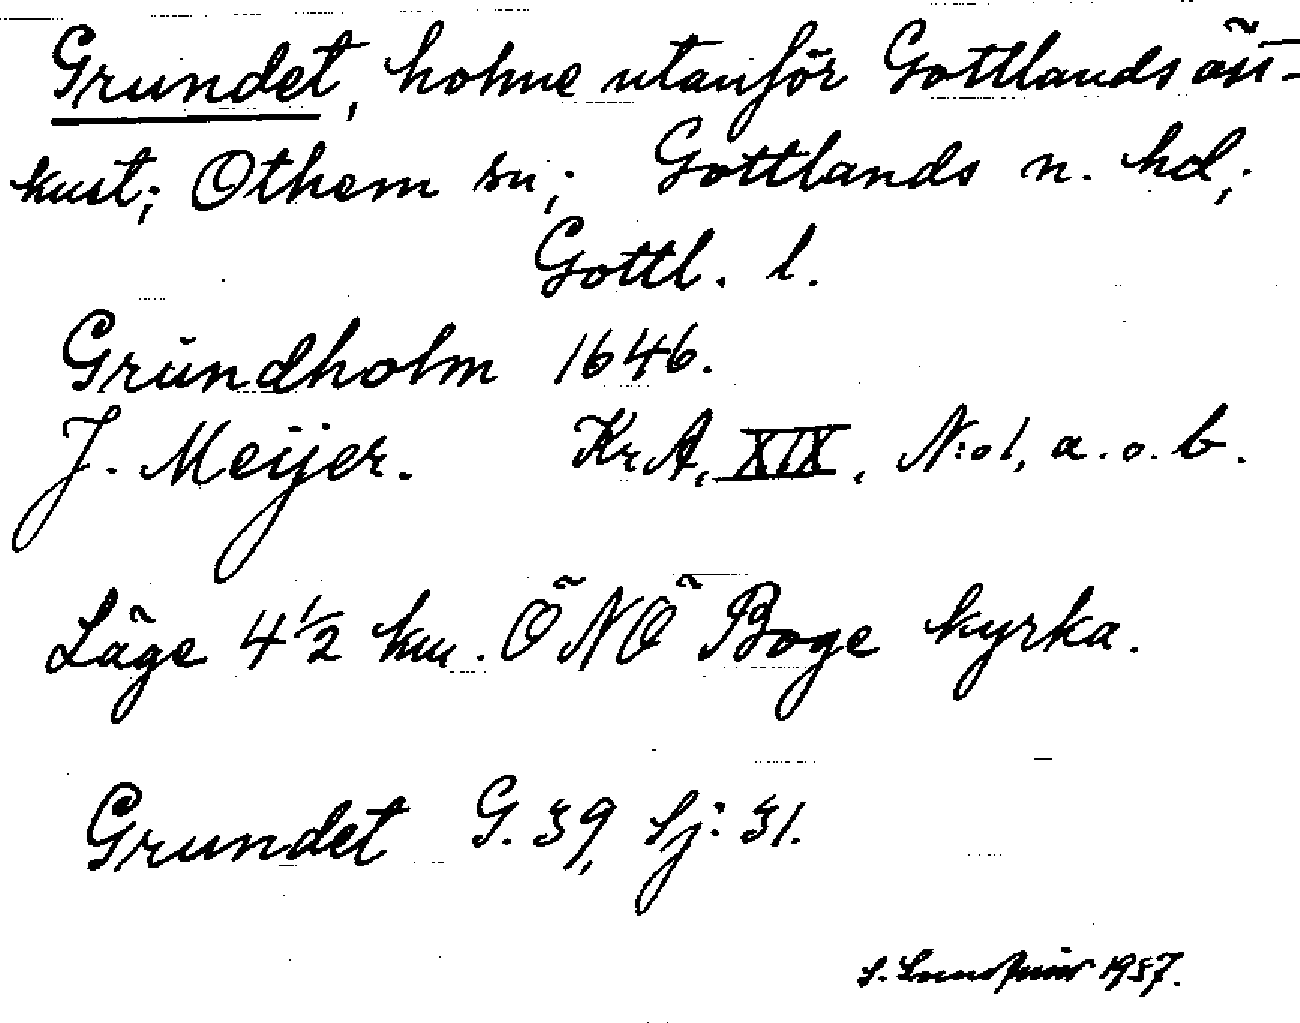 Grundet, holme utanför Gottlands öst-
kust; Othem sn; Gottlands n. hd;
Gottl. l.
Grundholm 1646.
J. Meijer. KrA, XIX, N:o 1, a. o. b.
Läge 4 1/2 km. ÖNÖ Boge kyrka.
Grundet G. 39, Sj: 31.
1957.